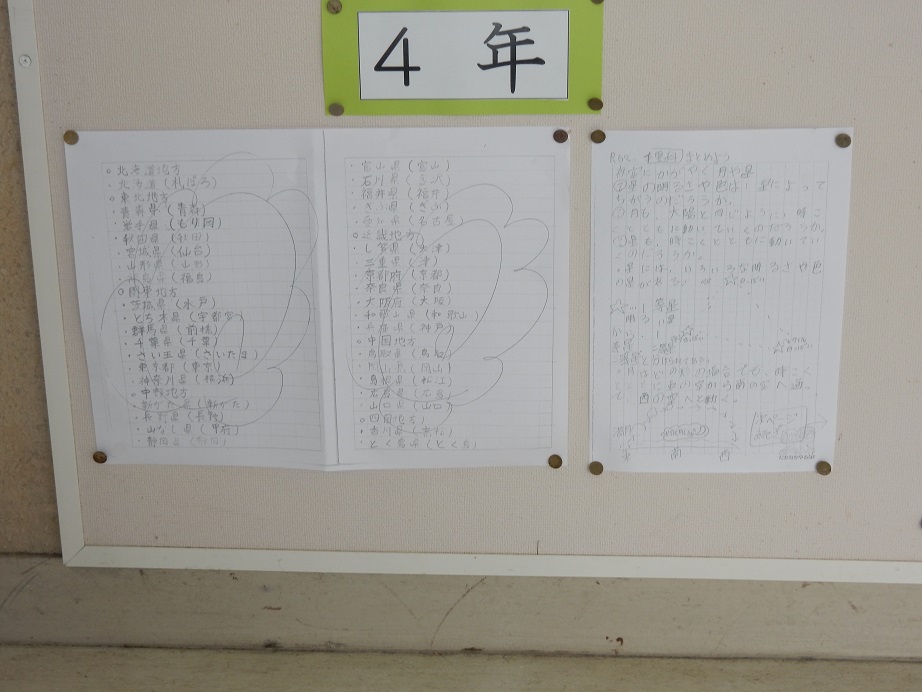 4 年
○北海道地方
・北海道(札ぽろ)
○東北地方
・青森県(青森)
・岩手県(もり岡)
・秋田県(秋田)
・宮城県(仙台)
・山形県(山形)
・福島県(福島)
○関東地方
・茨城県(水戸)
・とち木県(宇都宮)
・群馬県(前橋)
・千葉県(千葉)
・さい玉県(さいたま)
・東京都(東京)
・神奈川県(横浜)
○中部地方
・新がた県(新がた)
・長野県(長野)
・山なし県(甲府)
・静岡県(静岡)
・富山県(富山)
・石川県(金沢)
・福井県(福井)
・ぎふ県(ぎふ)
・愛知県(名古屋)
○近畿地方
・しが県(大津)
・三重県(津)
・京都府(京都)
・奈良県(奈良)
・大阪府(大阪)
・和歌山県(和歌山)
・兵庫県(神戸)
○中国地方
・鳥取県(鳥取)
・岡山県(岡山)
・島根県(松江)
・広島県(広島)
・山口県(山口)
○四国地方
・香川県(高松)
・とく島県(とく島)
理科 まとめよう
夜空にかがやく月や星
①星の明るさや色は、星によって
ちがうのだろうか。
②月も、太陽と同じように、時こ
くとともに動いていくのだろうか。
③星も、時こくとともに動いてい
くのだろうか。
・星には、いろいろな明るさや色
の星がある
一等星
明るい
二等星
・月はどの形の場合でも、時こく
とともに東の空から南の空へ通っ
て、西の空へと動く。
東 南 西